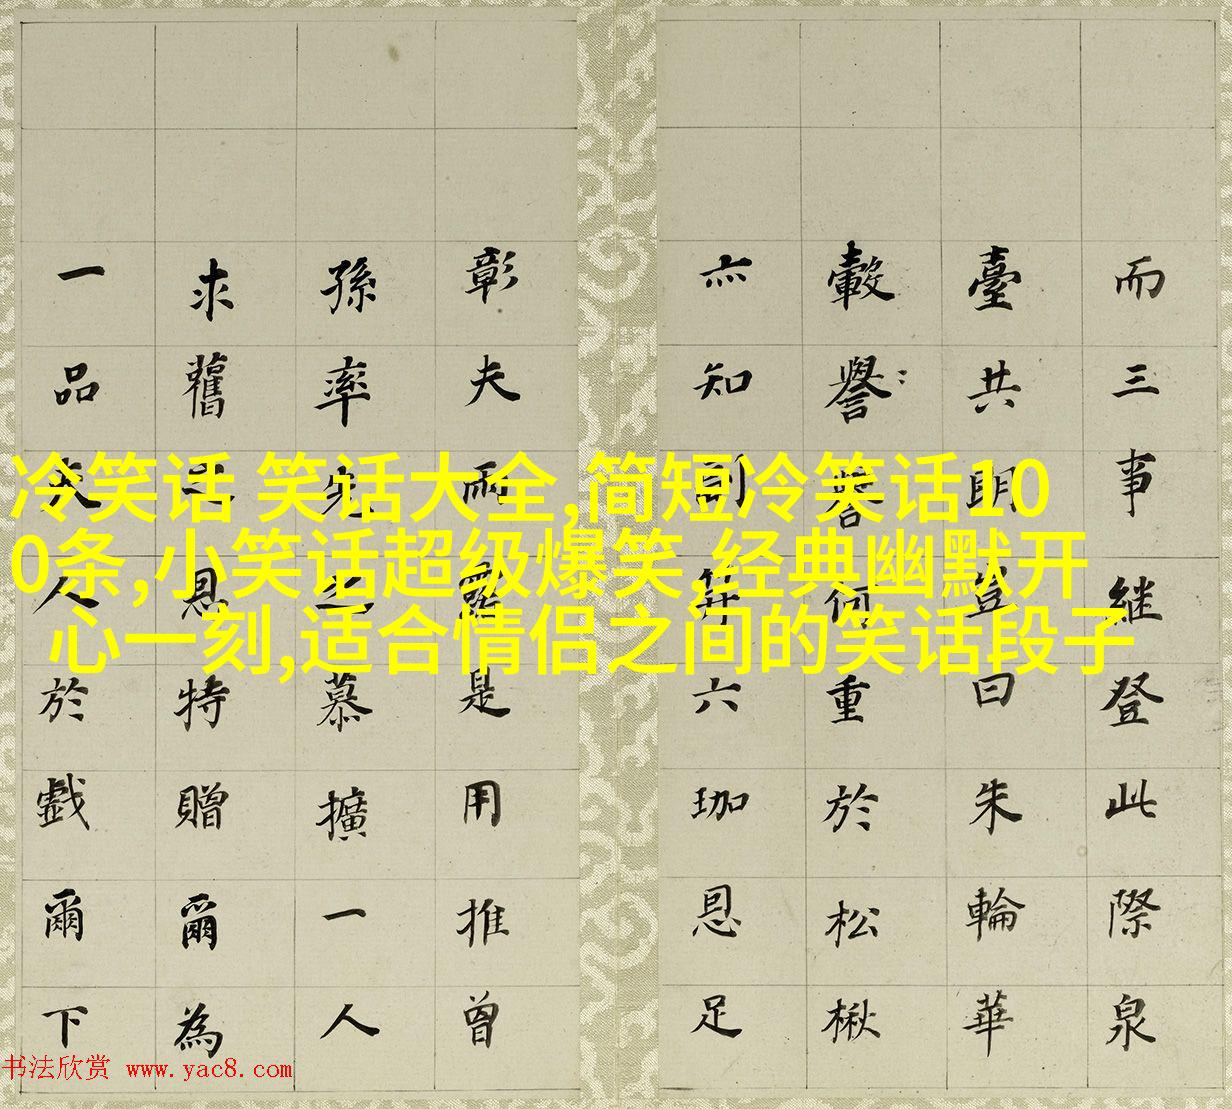 而三事継登此際泉
臺共明豈曰朱輪華
轂譽何重於松楸
亦知副笄六珈恩足
彰夫雨露是用推曾
孫率先之慕擴一人
求舊之恩特贈爾為
一品夫人於戲爾下
冷笑话 笑话大全,简短冷笑话10
0条,小笑话超级爆笑,经典幽默开
心一刻,适合情侣之间的笑话段子
书法欣赏 www.yac8.com